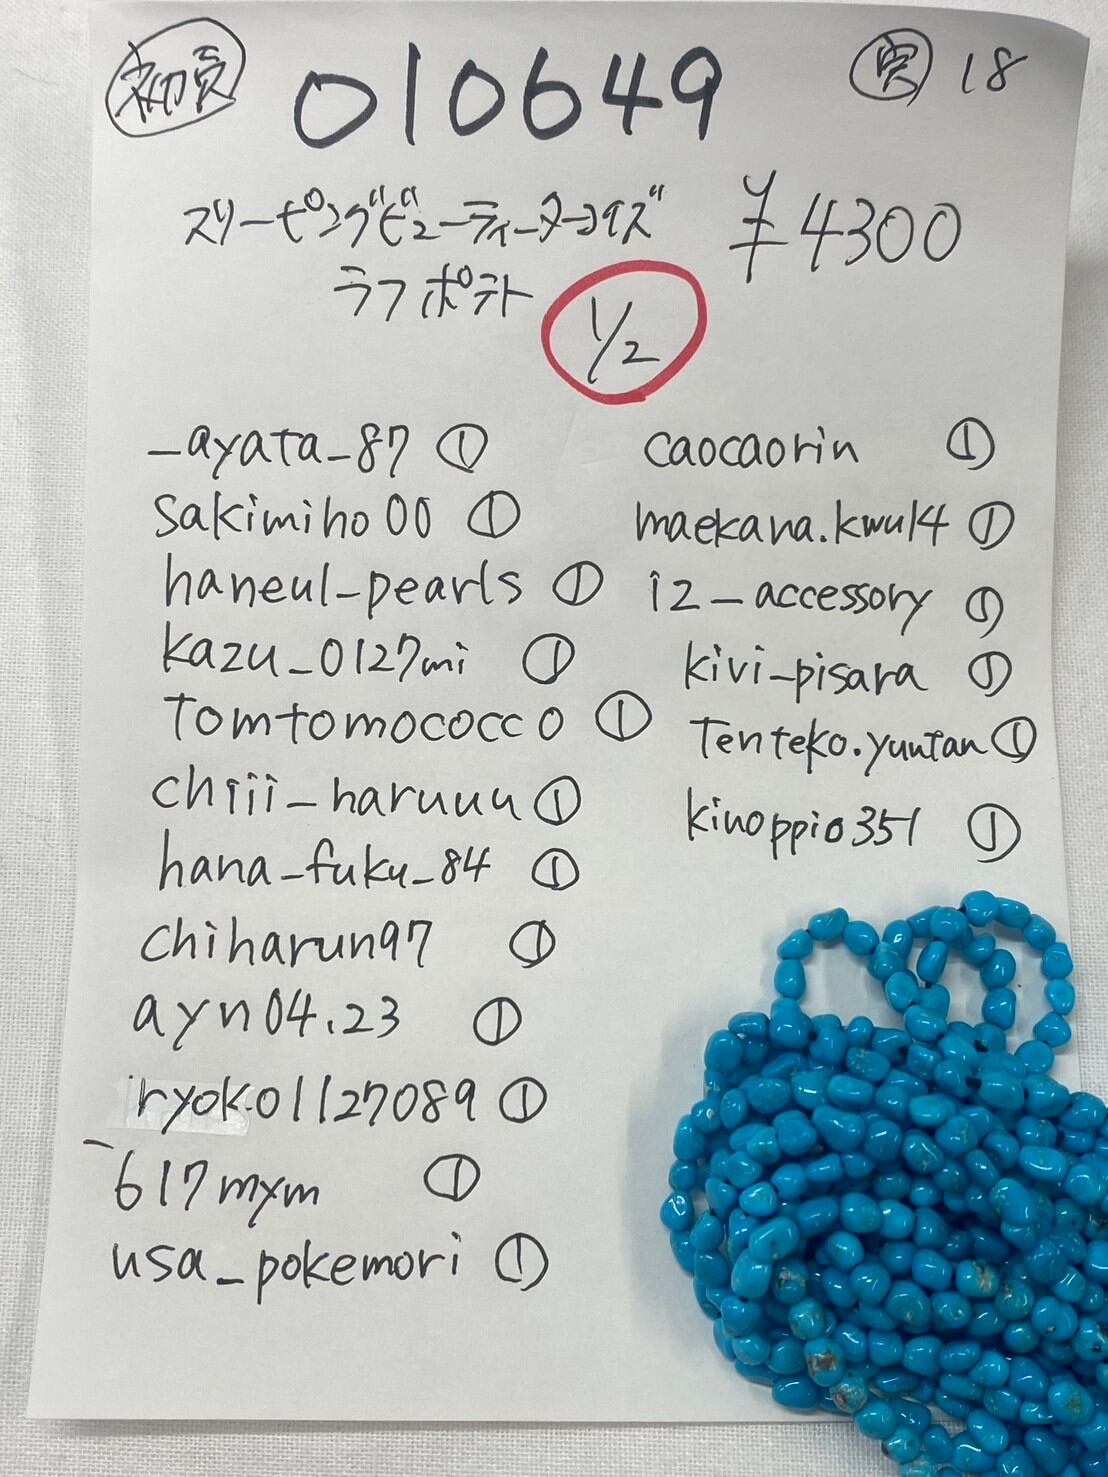 初売 010649 実 18
スリーピングビューティーターコイズ ¥4300
ラフポテト
1/2
_ayata_87 ①
sakimiho00 ①
haneul_pearls ①
kazu_0127mi ①
Tomtomococco ①
chiii_haruuu ①
hana_fuku_84 ①
chiharun97 ①
ayn04.23 ①
iryok01127089 ①
_617mym ①
usa_pokemori ①
caocaorin ①
maekana.kwu14 ①
iz_accessory ①
kivi_pisara ①
Tenteko.yuntan ①
kinoppio351 ①